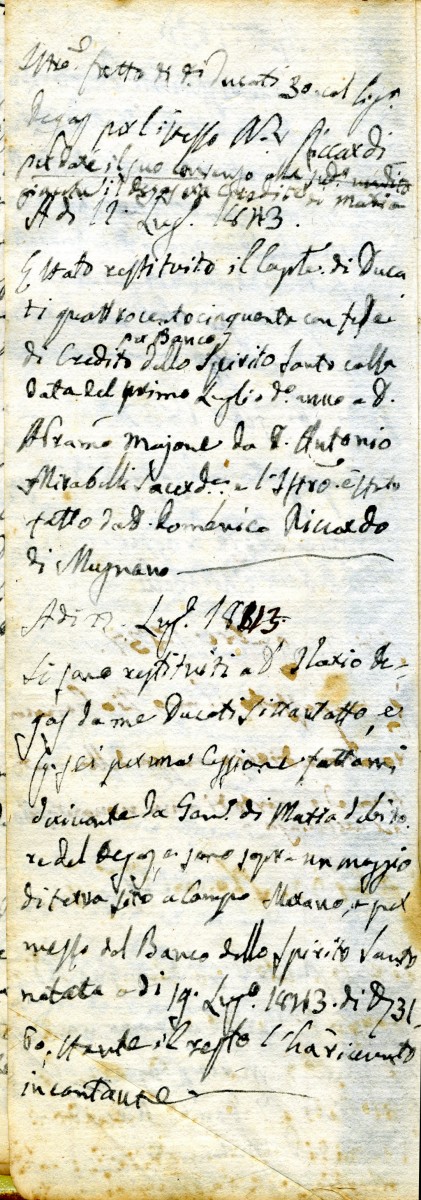 Istro. fatto di di. Ducati 30 col Sigr.
Degas per l'istesso Nr. Riccardi
per dare il suo consenso
Degas Creditore di Maria
A di 12. Lugo. 1843.
E stato restituito il Caple. di Duca
ti quattrocentocinquanta con fede
di Credito per Banco dello Spirito Santo colla
data del primo Luglio do. anno a D.
Abramo Majone da D. Antonio
Mirabelli Sacerde. e l'Istro. è stato
fatto da D. Domenico Riccardo
di Mugnano
A di 12. Lugo. 1843.
Si sono restituiti a D. Ilario De-
gas da me Ducati settantotto, e
gr. sei per una Cessione fattami
derivante da Genro. di Matia debito
re del Degas, e sono sopra un moggio
di terra sito a Campo Merano, e per
mezzo del Banco dello Spirito Santo
notata a di 19. Lugo. 1843. di D. 31
60, stante il resto l'ha ricevuto
in contante